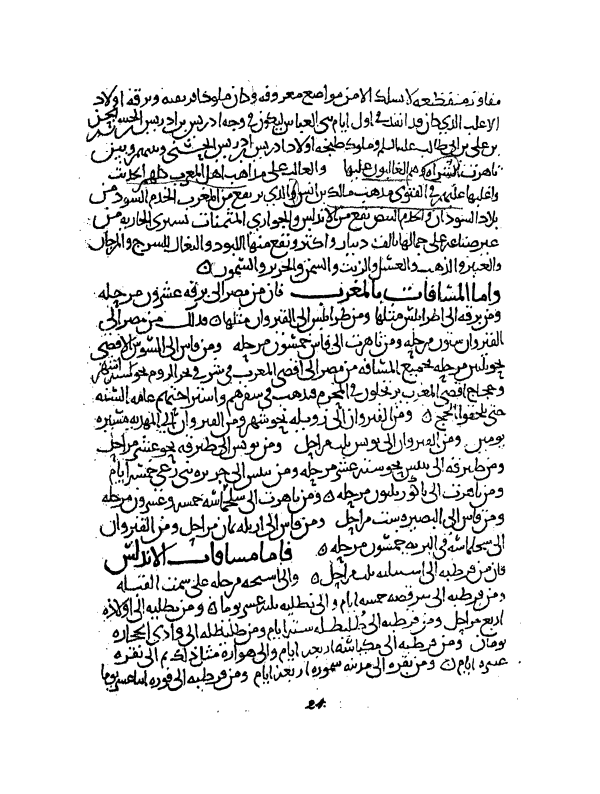 مفاوز منقطعه لا تسلك الا من مواضع معروفه وكان ملوك افريقيه وبرقه اولاد
الاغلب الذي كان في اول ايام بني العباس في وجه ادريس بن ادريس
بن علي بن ابي طالب وملوك طنجه اولاد ادريس بن ادريس وبينهم وبين
تاهرت الشراه وهم الغالبون عليها والغالب على مذاهب اهل المغرب كلهم الحديث
واغلبها عليهم في الفتوى مذهب مالك بن انس والذي يرتفع من المغرب الخدم السود من
بلاد السودان والخدم البيض تقع من الاندلس والجواري المثمنات تشترى الجاريه من
غير صناعه على جمالها بالف دينار واكثر وتقع منها اللبود والبغال للسرج والمرجان
والعنبر والذهب والعسل والزيت والسفن والحرير والسمور
واما المسافات بالمغرب فان من مصر الى برقه عشرون مرحله
ومن برقه الى اطرابلس مثلها ومن طرابلس الى القيروان مثلها فذلك من مصر الى
القيروان ستون مرحله ومن تاهرت الى فاس خمسون مرحله ومن فاس الى السوس الاقصى
نحو ثلثين مرحله فجميع المسافه من مصر الى اقصى المغرب في شرقي بحر الروم نحو سته اشهر
وحجاج اقصى المغرب يرتحلون في المحرم فتذهب في سفرهم واستراحتهم عامه السنه
حتى يلحقوا الحج ومن القيروان الى زويله نحو شهر ومن القيروان الى المهديه مسيره
يومين ومن القيروان الى تونس ثلث مراحل ومن تونس الى طبرقه نحو عشر مراحل
ومن طبرقه الى تنس نحو سته عشر مرحله ومن تنس الى جزيره بني زغني خمسه ايام
ومن تاهرت الى ناكور ثلثون مرحله ومن تاهرت الى سجلماسه خمسه وعشرون مرحله
ومن فاس الى البصره ست مراحل ومن فاس الى ازيله ثمان مراحل ومن القيروان
الى سجلماسه في البريه خمسون مرحله فاما مسافات الاندلس
فان من قرطبه الى اشبيليه ثلث مراحل والى استجه مرحله على سمت القبله
ومن قرطبه الى سرقسه خمسه ايام والى تطليه ثلثه عشر يوما ومن تطليه الى لارده
اربع مراحل ومن قرطبه الى طليطله سته ايام ومن طليطله الى وادي الحجاره
يومان ومن قرطبه الى مكناسه اربعه ايام والى هواره مثل ذلك ثم الى نفزه
عشره ايام ومن نفزه الى مدينه سموره اربعه ايام ومن قرطبه الى قوريه اثنا عشر يوما
24